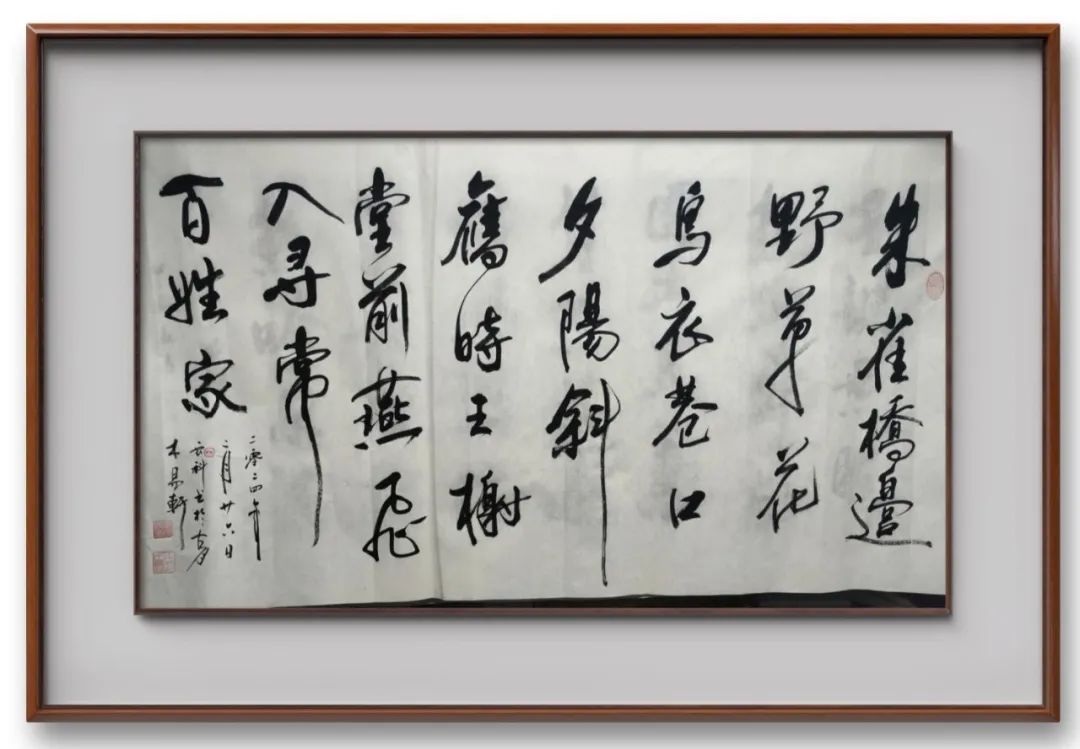 朱雀橋邊
野草花
烏衣巷口
夕陽斜
舊時王榭
堂前燕飛
入尋常
百姓家
二零二四年
二月廿六日
科书於
木易軒